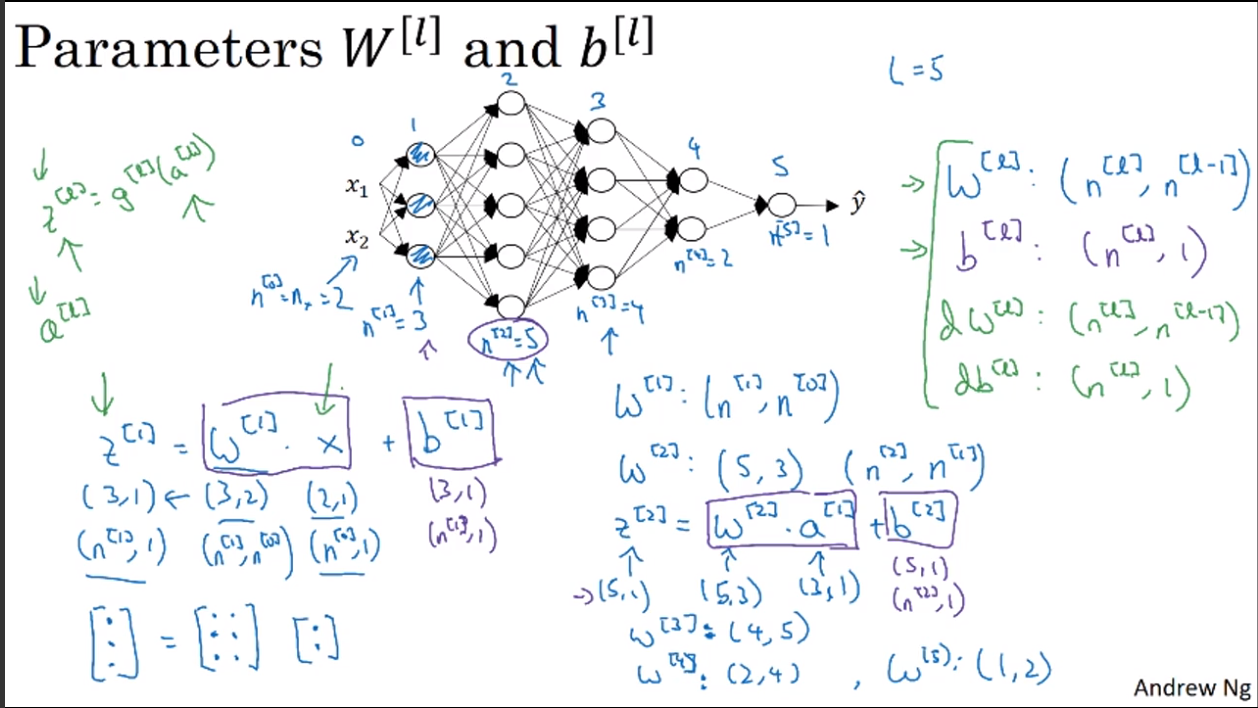 Parameters W^[l] and b^[l]
L = 5
0 1 2 3 4 5
x₁
x₂
ŷ
n^[0] = nₓ = 2
n^[1] = 3
n^[2] = 5
n^[3] = 4
n^[4] = 2
n^[5] = 1
z^[l] = g^[l](a^[l])
a^[l]
W^[l] : (n^[l], n^[l-1])
b^[l] : (n^[l], 1)
dW^[l] : (n^[l], n^[l-1])
db^[l] : (n^[l], 1)
z^[1] = W^[1] · x + b^[1]
(3,1) ← (3,2) (2,1) (3,1)
(n^[1], 1) (n^[1], n^[0]) (n^[0], 1) (n^[1], 1)
[⋮] = [⋮ ⋮] [:]
W^[1] : (n^[1], n^[0])
W^[2] : (5, 3) (n^[2], n^[1])
z^[2] = W^[2] · a^[1] + b^[2]
→ (5,1) (5,3) (3,1) (5,1)
(n^[2], 1)
W^[3] : (4, 5)
W^[4] : (2,4) , W^[5] : (1,2)
Andrew Ng